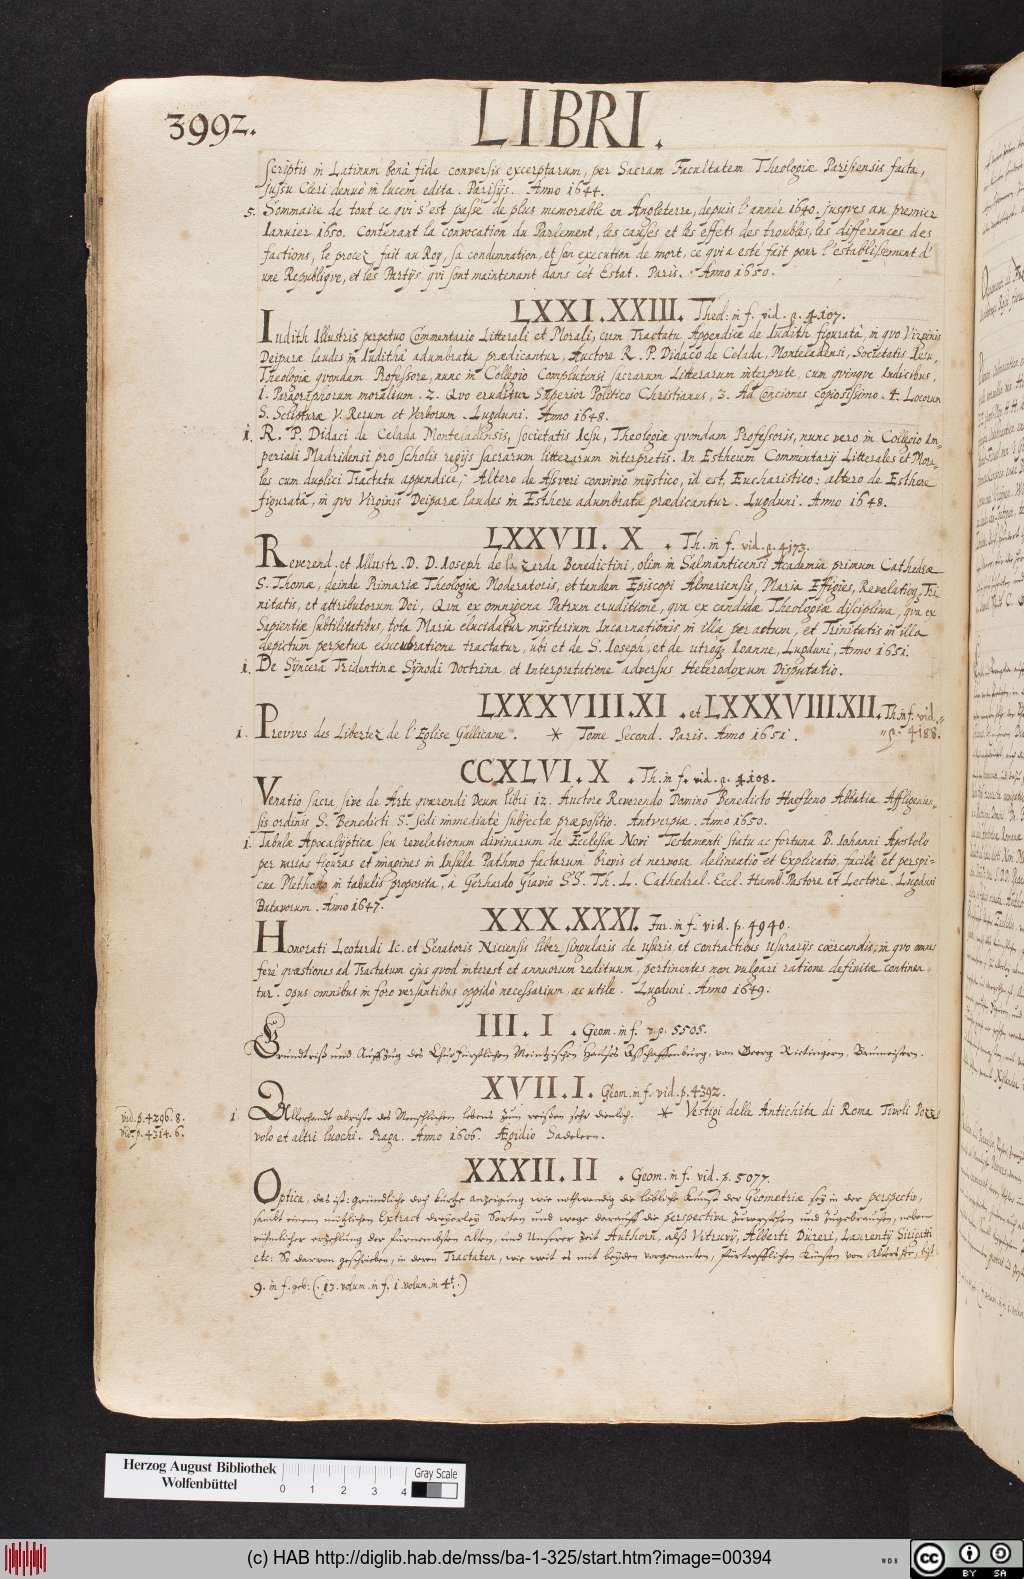 3992.
LIBRI.
scriptis in Latinum bonâ fide conversis excerptarum, per Sacram Facultatem Theologiæ Parisiensis facta,
jussu Cleri denuò in lucem edita. Parisijs. Anno 1644.
5. Sommaire de tout ce qui s'est passé de plus memorable en Angleterre, depuis l'année 1640. jusques au premier
Ianvier 1650. Contenant la convocation du Parlement, les causes et les effets des troubles, les differences des
factions, le procez fait au Roy, sa condemnation, et son execution de mort, ce qui a esté fait pour l'establissement d'
une Republique, et les Partys qui sont maintenant dans cet Estat. Paris. Anno 1650.
LXXI.XXIII. Theol: in f. vid. p. 4107.
Iudith Illustris perpetuo Commentario Litterali et Morali, cum Tractatu Appendice de Iudith figuratâ, in quo Virginis
Deiparæ laudes in Iudithâ adumbratæ prædicantur, Auctore R. P. Didaco de Celada, Monteladensi, Societatis Iesu,
Theologiæ quondam Professore, nunc in Collegio Complutensi sacrarum Litterarum interprete, cum quinque Indicibus,
1. Paragraphorum moralium. 2. Quo eruditur Superior Politico Christianus, 3. Ad Conciones copiosissimo. 4. Locorum
S. Scripturæ V. Rerum et Verborum. Lugduni. Anno 1648.
1. R. P. Didaci de Celada Monteladensis, societatis Iesu, Theologiæ quondam Professoris, nunc vero in Collegio Im-
periali Madridensi pro scholis regijs sacrarum litterarum interpretis. In Estherem Commentarij Litterales et Mora-
les cum duplici Tractatu appendice, Altero de Assveri convivio mystico, id est, Eucharistico: altero de Esthere
figuratâ, in quo Virginis Deiparæ laudes in Esthere adumbratæ prædicantur. Lugduni. Anno 1648.
LXXVII. X. Th. in f. vid. p. 4173.
Reverend. et Illustr. D. D. Ioseph de la Zerda Benedictini, olim in Salmanticensi Academia primum Cathedræ
S. Thomæ, deinde Primariæ Theologiæ Moderatoris, et tandem Episcopi Almeriensis, Maria Effigies, Revelatioq; Tri-
nitatis, et attributorum Dei, Qua ex omnigena Patrum eruditione, qua ex candidæ Theologiæ disciplina, qua ex
Sapientiæ subtilitatibus, tota Maria elucidatur mysterium Incarnationis in illa per actum, et Trinitatis in illa
depictum perpetua elucubratione tractatur, ubi et de S. Ioseph, et de utroq; Ioanne, Lugduni, Anno 1651.
1. De Syncera Tridentinæ Synodi Doctrina et Interpretatione adversus Heterodoxum Disputatio.
LXXXVIII.XI. et LXXXVIII.XII. Th. in f. vid.
p. 4188.
1. Preuves des Libertez de l'Eglise Gallicane. * Tome Second. Paris. Anno 1651.
CCXLVI. X. Th. in f. vid. p. 4108.
Venatio Sacra sive de Arte quærendi Deum libri 12. Auctore Reverendo Domino Benedicto Haefteno Abbatiæ Affligenien-
sis ordinis S. Benedicti S. sedi immediatè subjectæ præposito. Antverpiæ. Anno 1650.
1. Tabulæ Apocalypticæ seu revelationum divinarum de Ecclesiæ Novi Testamenti statu ac fortuna B. Iohanni Apostolo
per varias figuras et imagines in Insula Pathmo factarum brevis et nervosa delineatio et Explicatio, facile et perspi-
cua Methodo in tabulis proposita, à Gerhardo Gravio SS. Th. L. Cathedral. Eccl. Hamb. Pastore et Lectore. Lugduni
Batavorum. Anno 1647.
XXX.XXXI. Jur. in f. vid. p. 4940.
Honorati Leotardi Ic. et Senatoris Niciensis liber singularis de usuris et contractibus usurarijs coërcendis, in quo omnes
ferè quæstiones ad Tractatum ejus quod interest et annuorum redituum, pertinentes non vulgari ratione definitæ continen-
tur. opus omnibus in foro versantibus oppidò necessarium, ac utile. Lugduni. Anno 1649.
III. I. Geom. in f. v. p. 5505.
Grundtriß und Auffzug des Churfürstlichen Meintzischen Hauses Aschaffenburg, von Georg Ridingern, Baumeistern.
XVII. I. Geom. in f. vid. p. 4392.
vid. p. 4296. 8.
vid. p. 4314. 6.
1. Allerhandt abrisse des Menschlichen lebens zum reissen sehr dienlich. * Vestigi delle Antichita di Roma Tivoli Pozz-
volo et altri luochi. Praga. Anno 1606. Ægidio Sadelern.
XXXII. II. Geom. in f. vid. p. 5077
Optica, das ist: gründtliche doch kurtze anzeigung wie nothwendig die löbliche Kunst der Geometriæ sey in der perspectiv,
sambt einem nützlichen Extract dreyerley Sorten und wege darauff die perspectiva zuverstehen und zugebrauchen, neben
ordentlicher erzehlung der fürnembsten alten, und unserer zeit Authorn, alß Vitruvij, Alberti Düreri, Laurentij Sirigatti
etc: So darvon geschrieben, in deren Tractaten, wie weit es mit beyden vorgenanten, fürtrefflichen Künsten von Alters her,
9. in f. geb: (17. volum. in f. 1. volum. in 4t.)
Herzog August Bibliothek
Wolfenbüttel
0 1 2 3 4
Gray Scale
(c) HAB http://diglib.hab.de/mss/ba-1-325/start.htm?image=00394
WDB
cc BY SA